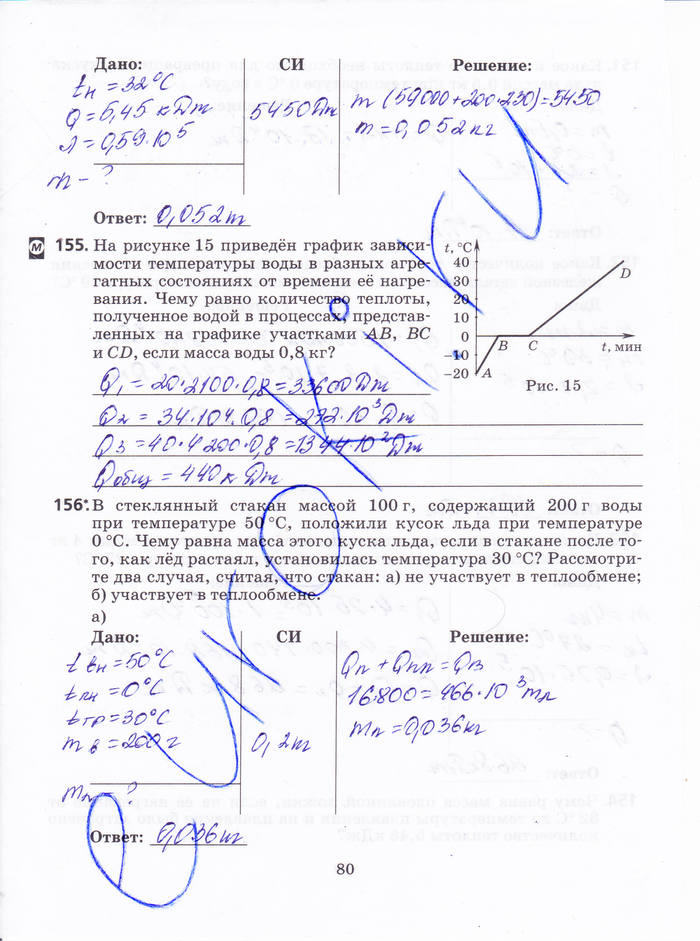 Дано: СИ Решение:
tн = 32°C
Q = 5,45 кДж 5450 Дж m (59000+200·230)=5450
λ = 0,59·10⁵ m = 0,052 кг
m - ?
Ответ: 0,052 кг
155. На рисунке 15 приведён график зависи-
мости температуры воды в разных агре-
гатных состояниях от времени её нагре-
вания. Чему равно количество теплоты,
полученное водой в процессах, представ-
ленных на графике участками AB, BC
и CD, если масса воды 0,8 кг?
t, °C
40
30
20
10
0
-10
-20
A
B
C
D
t, мин
Рис. 15
Q₁ = 20·2100·0,8 = 33600 Дж
Q₂ = 34·10⁴·0,8 = 272·10³ Дж
Q₃ = 40·4200·0,8 = 1344·10² Дж
Qобщ = 440 кДж
156*. В стеклянный стакан массой 100 г, содержащий 200 г воды
при температуре 50 °C, положили кусок льда при температуре
0 °C. Чему равна масса этого куска льда, если в стакане после то-
го, как лёд растаял, установилась температура 30 °C? Рассмотри-
те два случая, считая, что стакан: а) не участвует в теплообмене;
б) участвует в теплообмене.
а)
Дано: СИ Решение:
t вн = 50°C Qл + Qпл = Qв
t лн = 0°C 16800 = 466·10³mл
t гр = 30°C mл = 0,036 кг
m в = 200 г 0,2 кг
mл - ?
Ответ: 0,036 кг
80